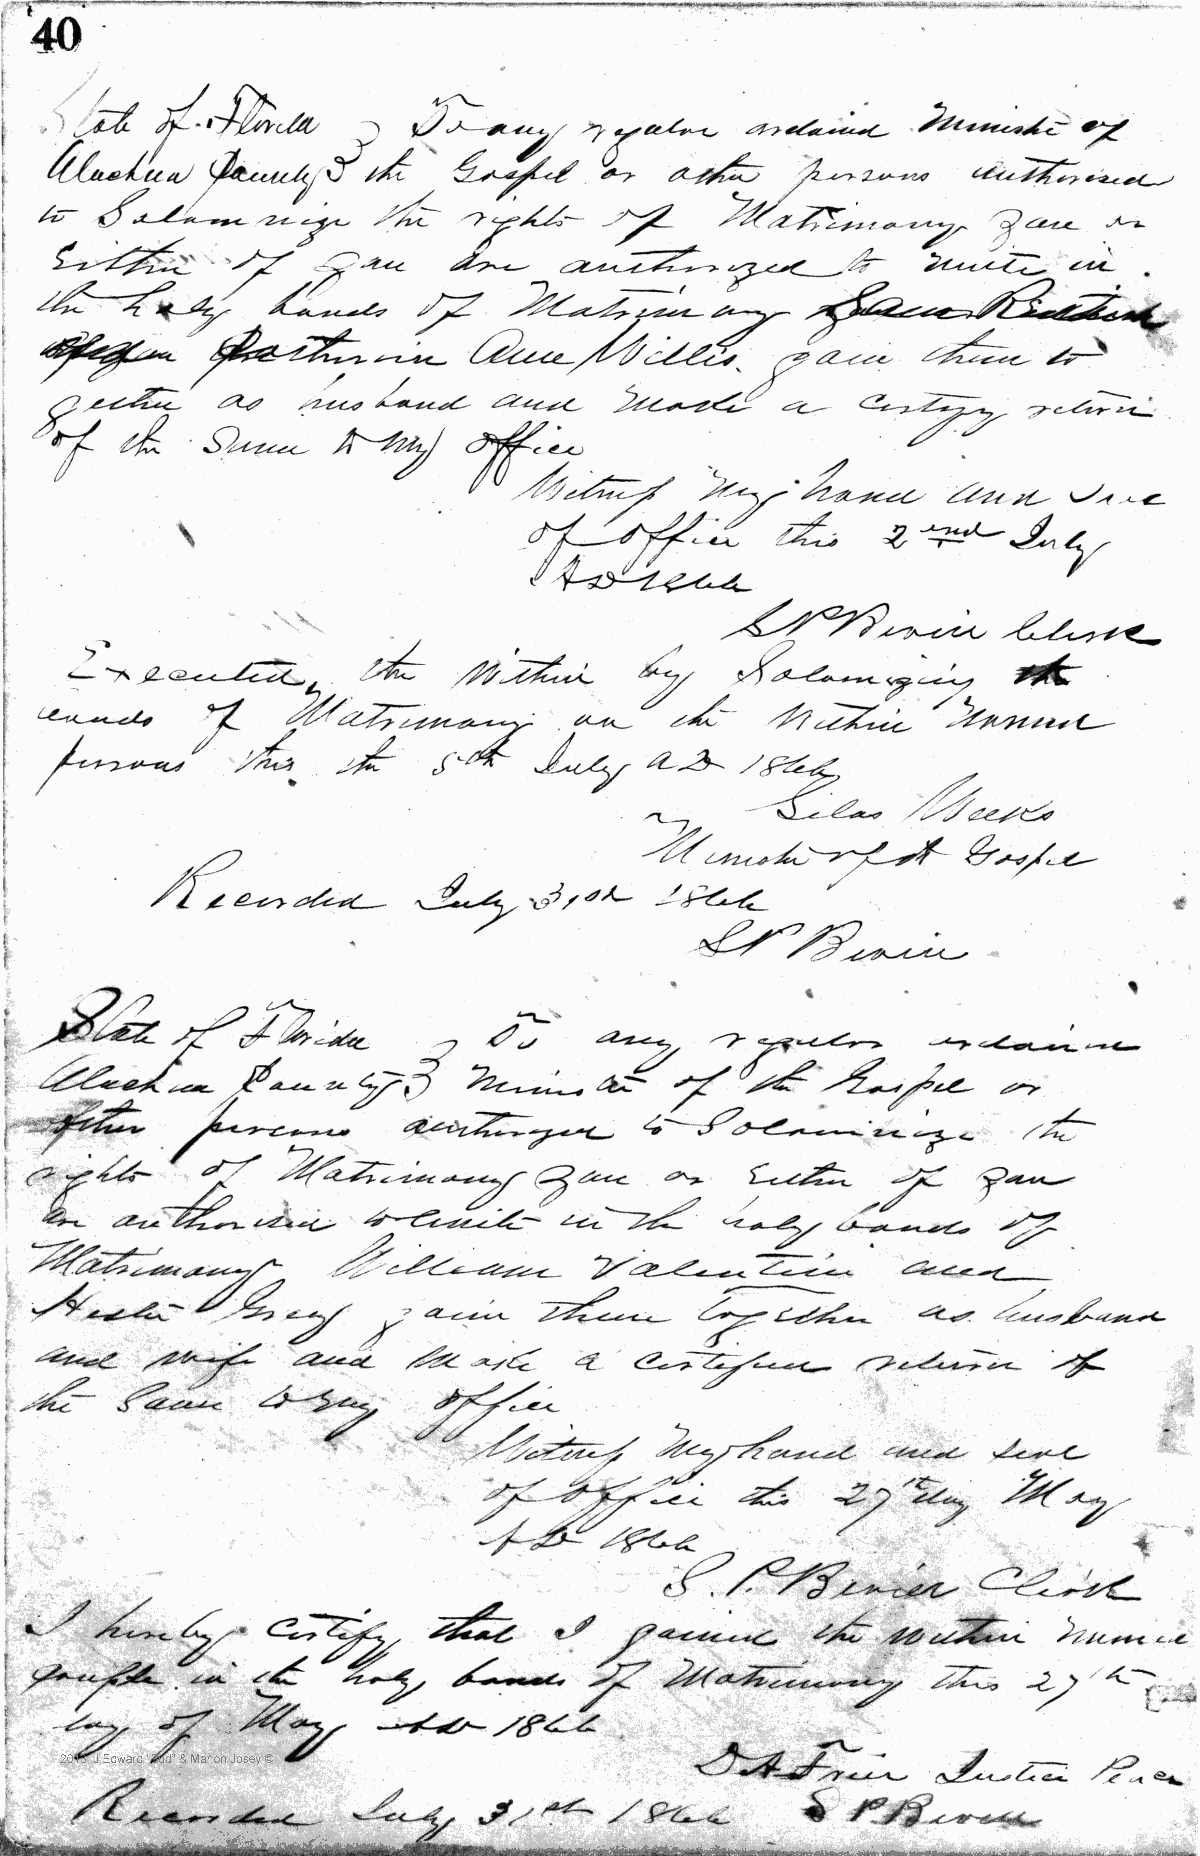 40
State of Florida } To any regular ordained Ministe of
Alachua County } the Gospel or other persons authorised
to Solomnize the rights of Matrimony you or
Either of you are authorized to unite in
the holy bands of Matrimony Sam
Ann Willis. gain them to
gether as husband and Make a certify return
of the Same to My office
Witness My hand and Seal
of office this 2nd July
AD 1866
S P Bevill Clerk
Executed the Within by Solomizing the
bands of Matrimony on the Within Named
persons this the 5th July AD 1866
Silas Weeks
Minister of the Gospel
Recorded July 31st 1866
S P Bevill
State of Florida } To any regular ordained
Alachua County } Minister of the Gospel or
other persons authorized to Solominize the
rights of Matrimony you or Either of you
are authorised to Unite in the holy bands of
Matrimony William Valentine and
Hester Grey gain them together as husband
and wife and Make a certified return of
the Same to my office
Witness My hand and Seal
of office this 27th day May
AD 1866
S. P. Bevill Clerk
I hereby certify that I gained the within named
couple in the holy bands of Matrimony this 27th
day of May AD 1866
2013 J Edward "Bud" & Marion Josey ©
D A Frier Justice Peace
Recorded July 31st 1866 S P Bevill